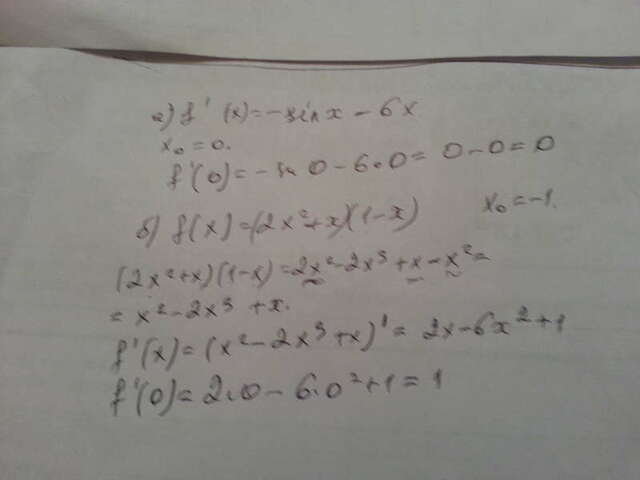 а) f'(x)=-sin x - 6x
x₀=0.
f'(0)=-sin 0-6·0=0-0=0
б) f(x)=(2x²+x)(1-x)    x₀=-1.
(2x²+x)(1-x)=2x²-2x³+x-x²=
=x²-2x³+x.
f'(x)=(x²-2x³+x)'=2x-6x²+1
f'(0)=2·0-6·0²+1=1